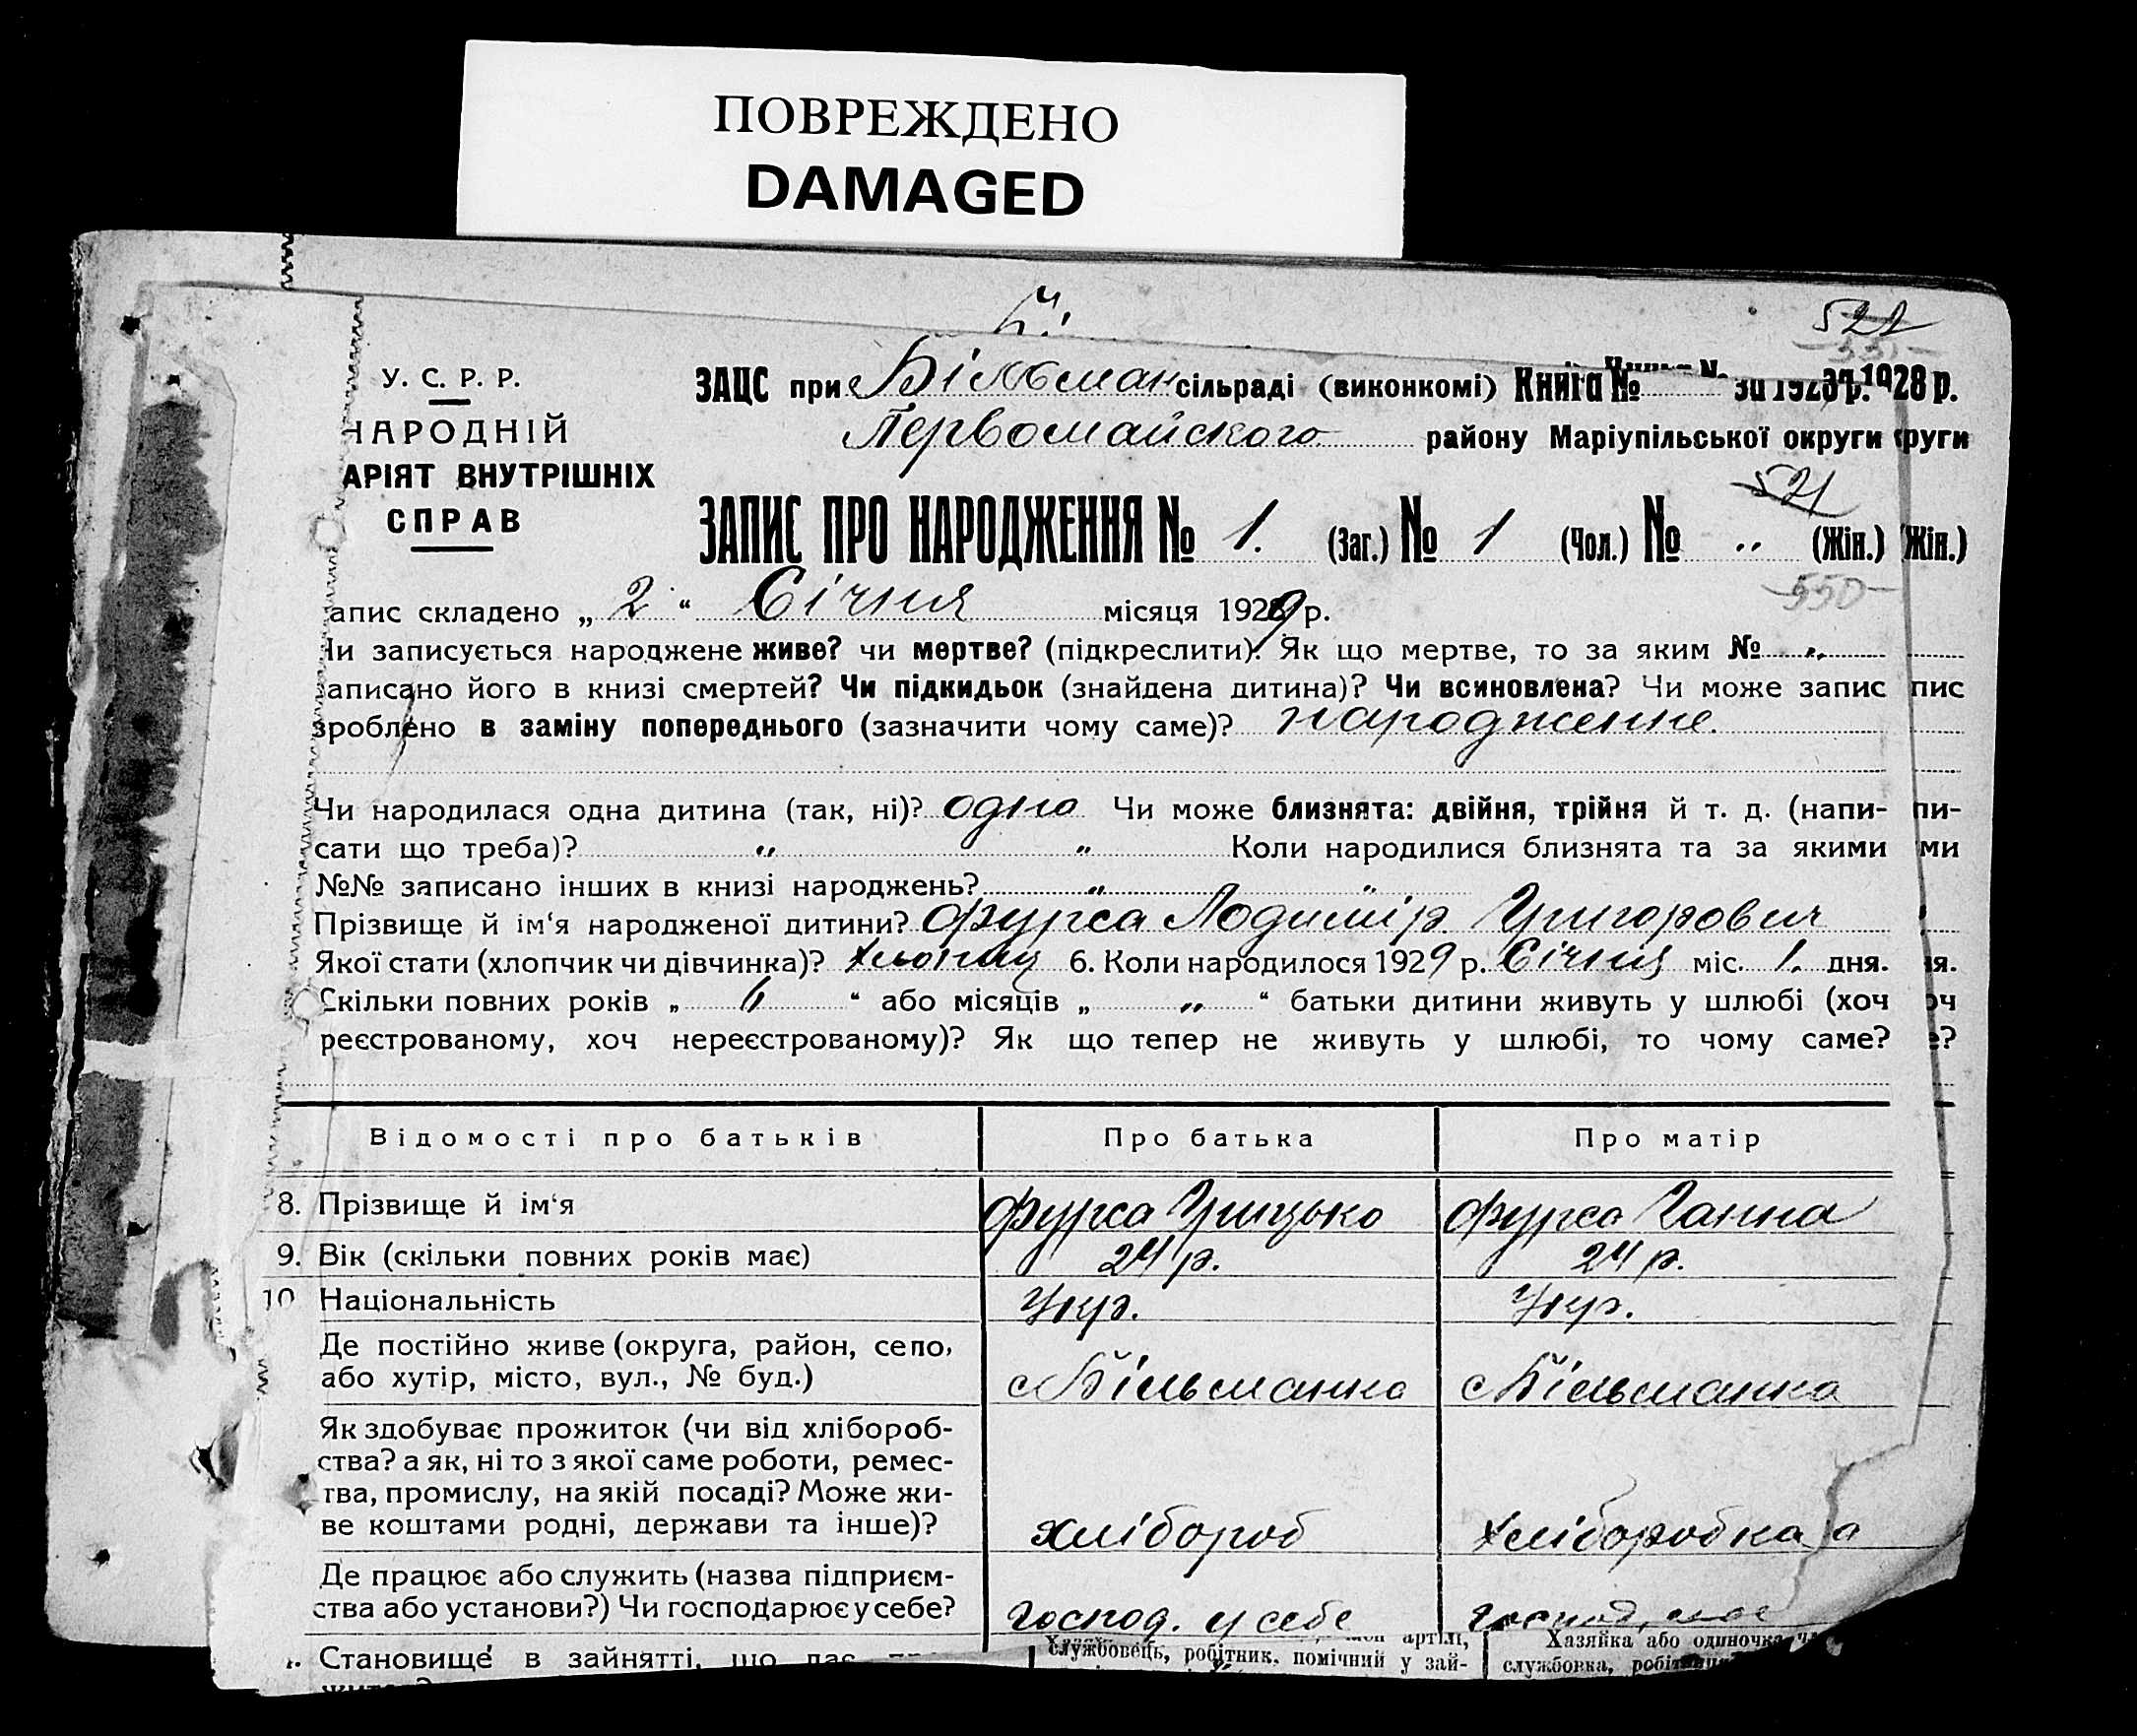 ПОВРЕЖДЕНО
DAMAGED
521
У. С. Р. Р.
НАРОДНІЙ
АРІЯТ ВНУТРІШНІХ
СПРАВ
ЗАЦС при Більман сільраді (виконкомі) Книга № 1928 р.
Первомайского району Маріупільської округи руги
521
ЗАПИС ПРО НАРОДЖЕННЯ № 1. (Заг.) № 1 (Чол.) № „ (Жін.) Жін.)
550
апис складено „ 2 “ Січня місяця 1929 р.
Чи записується народжене живе? чи мертве? (підкреслити). Як що мертве, то за яким № „
записано його в книзі смертей? Чи підкидьок (знайдена дитина)? Чи всиновлена? Чи може запис пис
зроблено в заміну попереднього (зазначити чому саме)? народження.
Чи народилася одна дитина (так, ні)? одно Чи може близнята: двійня, трійня й т. д. (напи- пи-
сати що треба)? „ „ Коли народилися близнята та за якими ми
№№ записано інших в книзі народжень? „ „
Прізвище й ім‘я народженої дитини? Фурса Лодимір Григорович
Якої стати (хлопчик чи дівчинка)? Хлопчик 6. Коли народилося 1929 р. Січня міс. 1. дня. ня.
Скільки повних років „ “ або місяців „ „ “ батьки дитини живуть у шлюбі (хоч оч
реєстрованому, хоч нереєстрованому)? Як що тепер не живуть у шлюбі, то чому саме? е?
Відомості про батьків Про батька Про матір
8. Прізвище й ім‘я Фурса Грицько Фурса Ганна
9. Вік (скільки повних років має) 24 р. 24 р.
10 Національність Укр. Укр.
Де постійно живе (округа, район, село,
або хутір, місто, вул., № буд.) с Більманка с Більманка
Як здобуває прожиток (чи від хлібороб-
ства? а як, ні то з якої саме роботи, ремес-
тва, промислу, на якій посаді? Може жи-
ве коштами родні, держави та інше)? хлібороб Хліборобка а
Де працює або служить (назва підприєм-
ства або установи?) Чи господарює у себе? Господ. у себе Господ.
артілі, Хазяйка або одиночка
Становище в зайнятті, що дає службовець, робітник, помічний у зай- службовка,